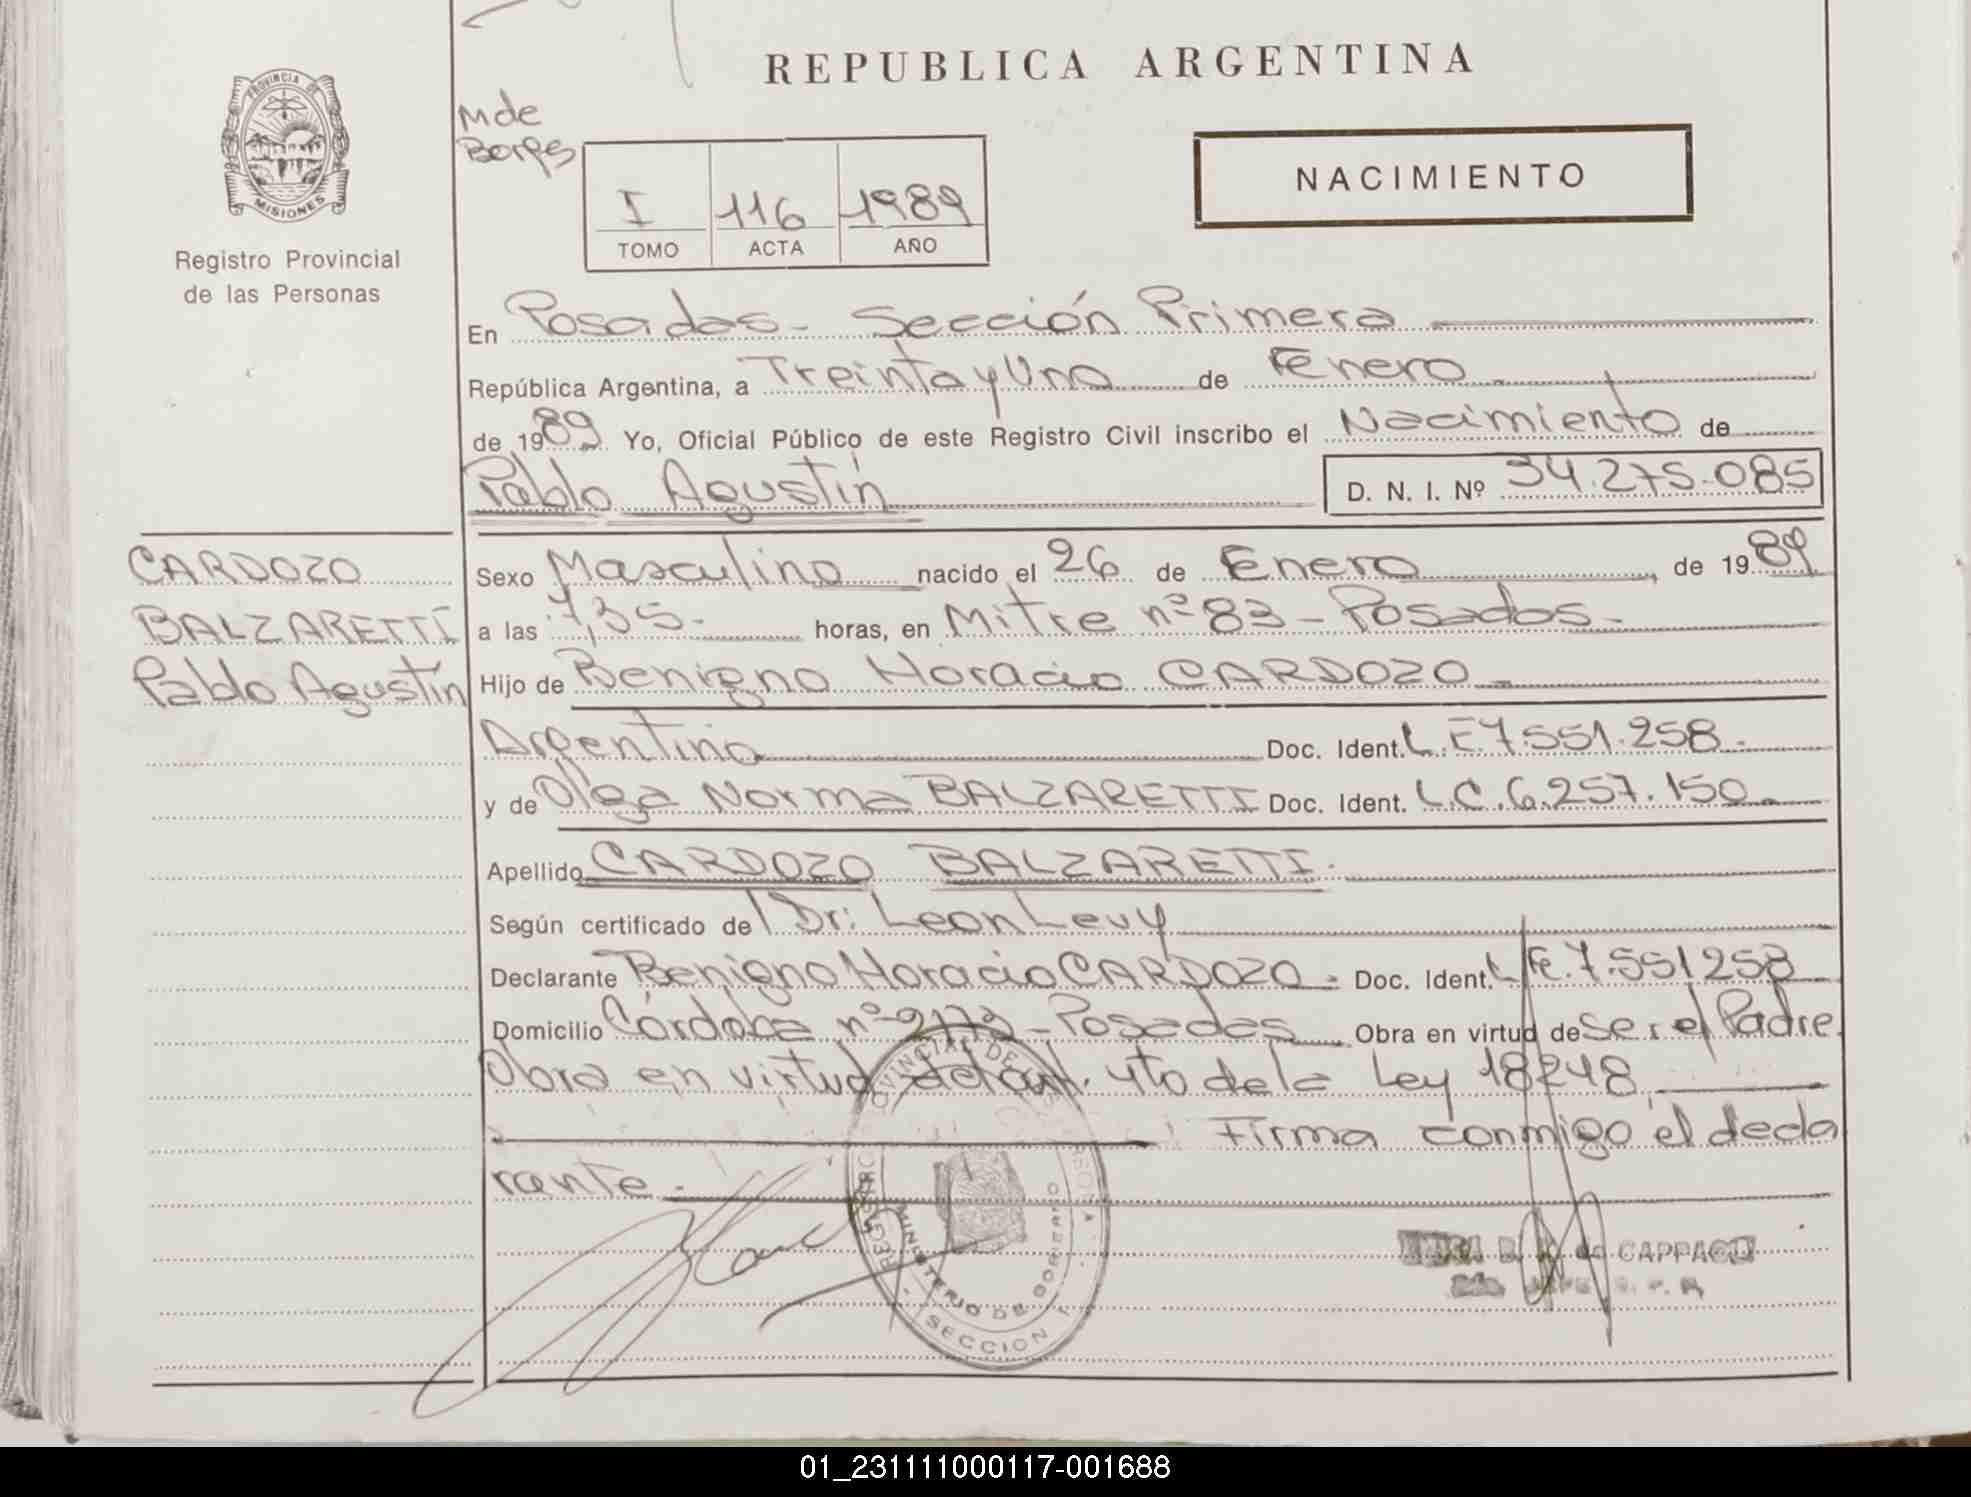 REPUBLICA ARGENTINA
PROVINCIA DE
MISIONES
Registro Provincial
de las Personas
M de
Borges
I 116 1989
TOMO ACTA AÑO
NACIMIENTO
En Posadas - Sección Primera
República Argentina, a Treinta y Uno de Enero
de 1989 Yo, Oficial Público de este Registro Civil inscribo el Nacimiento de
Pablo Agustín D. N. I. Nº 34.275.085
CARDOZO
BALZARETTI
Pablo Agustín
Sexo Masculino nacido el 26 de Enero, de 1989
a las 7,35- horas, en Mitre nº 83 - Posadas-
Hijo de Benigno Horacio CARDOZO
Argentino Doc. Ident. L.E 7.551.258-
y de Olga Norma BALZARETTI Doc. Ident. L.C. 6.257.150-
Apellido CARDOZO BALZARETTI.
Según certificado de l Dr: Leon Levy
Declarante Benigno Horacio CARDOZO - Doc. Ident. L.E. 7.551258
Domicilio Córdoba nº - Posadas Obra en virtud de ser el Padre.
Obra en virtud del art. 4to de la Ley 18248
Firma conmigo el decla
rante.
MINISTERIO DE GOBIERNO
SECCION 1
de CAPPAGLI
2da. JEFE R. P. P.
01_231111000117-001688